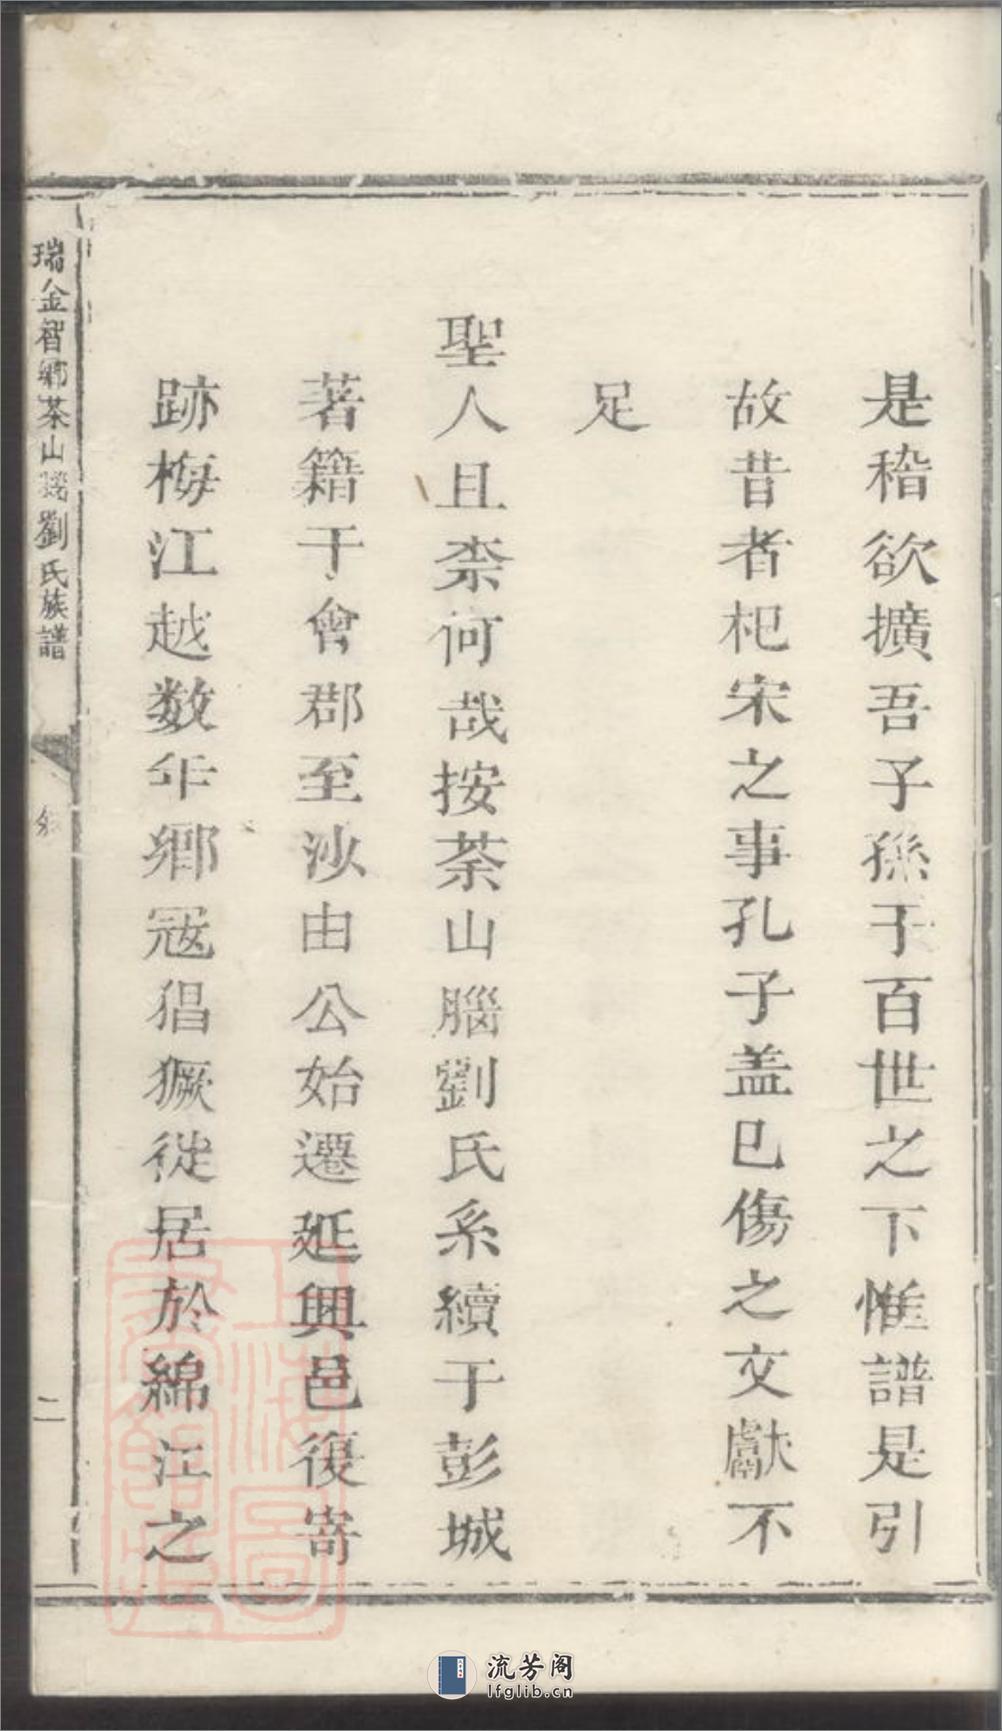 是稽欲擴吾子孫于百世之下惟譜是引
故昔者杞宋之事孔子盖已傷之文獻不
足
聖人且柰何哉按茶山腦劉氏系續于彭城
著籍于會郡至沙由公始遷延興邑復寄
跡梅江越数年鄉冦猖獗徙居於綿江之
瑞金智鄉茶山劉氏族譜
二
流芳阁
lfglib.cn